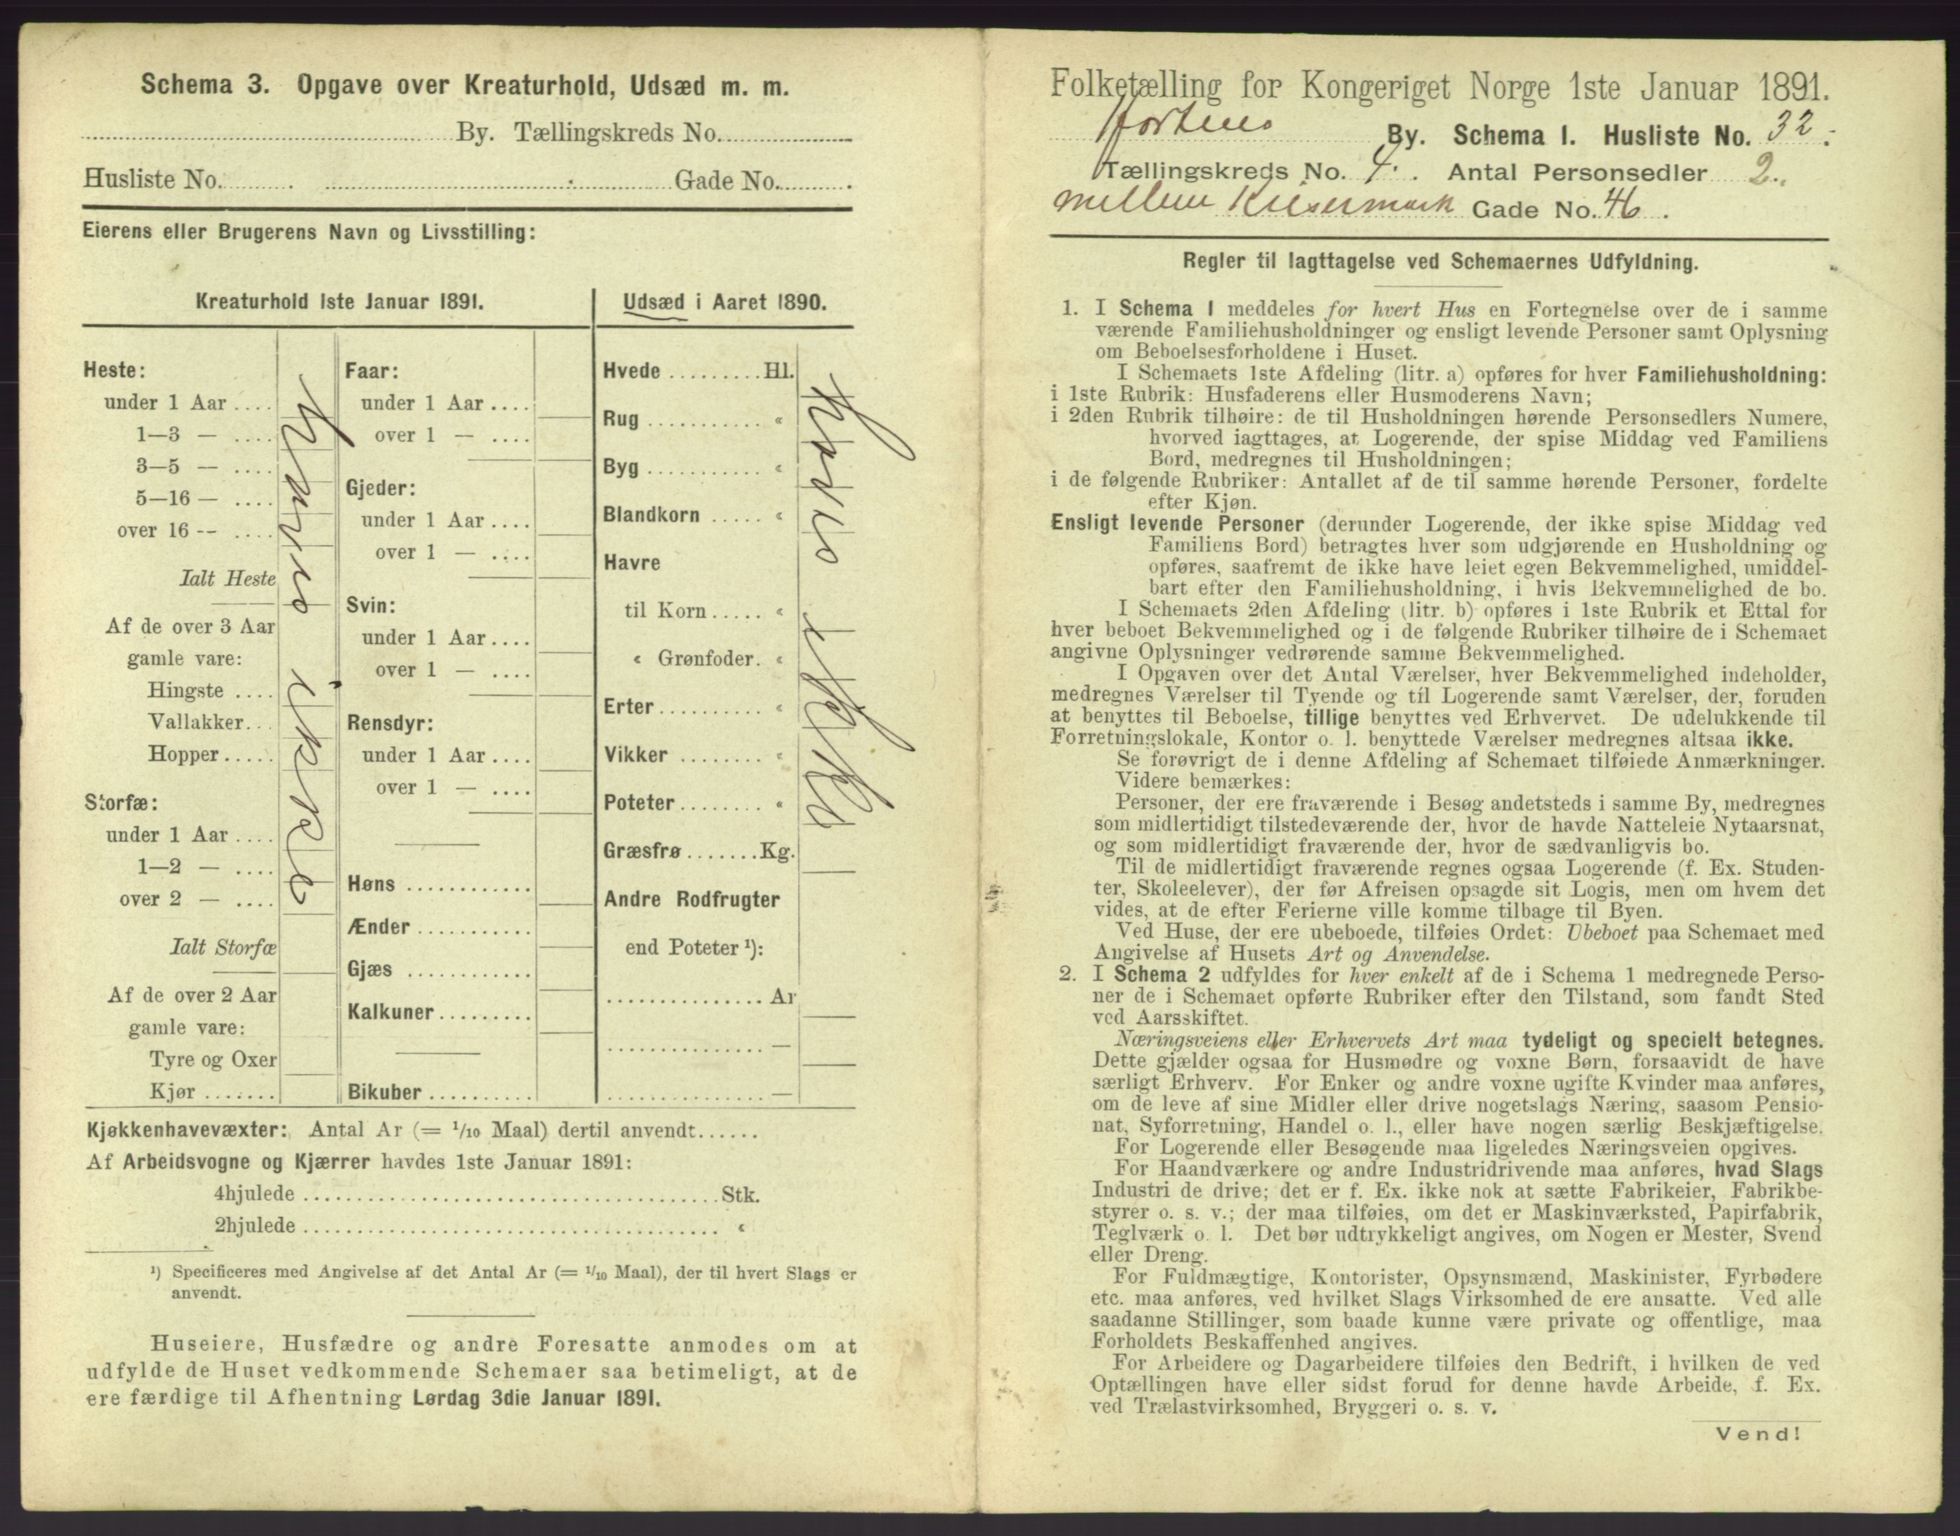 Schema 3. Opgave over Kreaturhold, Udsæd m. m.
By. Tællingskreds No.
Husliste No. Gade No.
Eierens eller Brugerens Navn og Livsstilling:
Kreaturhold 1ste Januar 1891.
Heste:
under 1 Aar
1—3 —
3—5 —
5—16 —
over 16 —
Ialt Heste
Af de over 3 Aar
gamle vare:
Hingste
Vallakker
Hopper
Storfæ:
under 1 Aar
1—2 —
over 2 —
Ialt Storfæ
Af de over 2 Aar
gamle vare:
Tyre og Oxer
Kjør
Haves ikke
Faar:
under 1 Aar
over 1 —
Gjeder:
under 1 Aar
over 1 —
Svin:
under 1 Aar
over 1 —
Rensdyr:
under 1 Aar
over 1 —
Høns
Ænder
Gjæs
Kalkuner
Bikuber
Udsæd i Aaret 1890.
Hvede Hl.
Rug «
Byg «
Blandkorn «
Havre
til Korn «
« Grønfoder «
Erter «
Vikker «
Poteter «
Græsfrø Kg.
Andre Rodfrugter
end Poteter ¹):
Ar
—
—
Haves ikke
Kjøkkenhavevæxter: Antal Ar (= 1/10 Maal) dertil anvendt
Af Arbeidsvogne og Kjærrer havdes 1ste Januar 1891:
4hjulede Stk.
2hjulede «
¹) Specificeres med Angivelse af det Antal Ar (= 1/10 Maal), der til hvert Slags er
anvendt.
Huseiere, Husfædre og andre Foresatte anmodes om at
udfylde de Huset vedkommende Schemaer saa betimeligt, at de
ere færdige til Afhentning Lørdag 3die Januar 1891.
Folketælling for Kongeriget Norge 1ste Januar 1891.
Hortens By. Schema 1. Husliste No. 32.
Tællingskreds No. 4. Antal Personsedler 2.
mellem Gade No. 46.
Regler til Iagttagelse ved Schemaernes Udfyldning.
1. I Schema 1 meddeles for hvert Hus en Fortegnelse over de i samme
værende Familiehusholdninger og ensligt levende Personer samt Oplysning
om Beboelsesforholdene i Huset.
I Schemaets 1ste Afdeling (litr. a) opføres for hver Familiehusholdning:
i 1ste Rubrik: Husfaderens eller Husmoderens Navn;
i 2den Rubrik tilhøire: de til Husholdningen hørende Personsedlers Numere,
hvorved iagttages, at Logerende, der spise Middag ved Familiens
Bord, medregnes til Husholdningen;
i de følgende Rubriker: Antallet af de til samme hørende Personer, fordelte
efter Kjøn.
Ensligt levende Personer (derunder Logerende, der ikke spise Middag ved
Familiens Bord) betragtes hver som udgjørende en Husholdning og
opføres, saafremt de ikke have leiet egen Bekvemmelighed, umiddel-
bart efter den Familiehusholdning, i hvis Bekvemmelighed de bo.
I Schemaets 2den Afdeling (litr. b) opføres i 1ste Rubrik et Ettal for
hver beboet Bekvemmelighed og i de følgende Rubriker tilhøire de i Schemaet
angivne Oplysninger vedrørende samme Bekvemmelighed.
I Opgaven over det Antal Værelser, hver Bekvemmelighed indeholder,
medregnes Værelser til Tyende og til Logerende samt Værelser, der, foruden
at benyttes til Beboelse, tillige benyttes ved Erhvervet. De udelukkende til
Forretningslokale, Kontor o. l. benyttede Værelser medregnes altsaa ikke.
Se forøvrigt de i denne Afdeling af Schemaet tilføiede Anmærkninger.
Videre bemærkes:
Personer, der ere fraværende i Besøg andetsteds i samme By, medregnes
som midlertidigt tilstedeværende der, hvor de havde Natteleie Nytaarsnat,
og som midlertidigt fraværende der, hvor de sædvanligvis bo.
Til de midlertidigt fraværende regnes ogsaa Logerende (f. Ex. Studen-
ter, Skoleelever), der før Afreisen opsagde sit Logis, men om hvem det
vides, at de efter Ferierne ville komme tilbage til Byen.
Ved Huse, der ere ubeboede, tilføies Ordet: Ubeboet paa Schemaet med
Angivelse af Husets Art og Anvendelse.
2. I Schema 2 udfyldes for hver enkelt af de i Schema 1 medregnede Perso-
ner de i Schemaet opførte Rubriker efter den Tilstand, som fandt Sted
ved Aarsskiftet.
Næringsveiens eller Erhvervets Art maa tydeligt og specielt betegnes.
Dette gjælder ogsaa for Husmødre og voxne Børn, forsaavidt de have
særligt Erhverv. For Enker og andre voxne ugifte Kvinder maa anføres,
om de leve af sine Midler eller drive nogetslags Næring, saasom Pensio-
nat, Syforretning, Handel o. l., eller have nogen særlig Beskjæftigelse.
For Logerende eller Besøgende maa ligeledes Næringsveien opgives.
For Haandværkere og andre Industridrivende maa anføres, hvad Slags
Industri de drive; det er f. Ex. ikke nok at sætte Fabrikeier, Fabrikbe-
styrer o. s. v.; der maa tilføies, om det er Maskinværksted, Papirfabrik,
Teglværk o. l. Det bør udtrykkeligt angives, om Nogen er Mester, Svend
eller Dreng.
For Fuldmægtige, Kontorister, Opsynsmænd, Maskinister, Fyrbødere
etc. maa anføres, ved hvilket Slags Virksomhed de ere ansatte. Ved alle
saadanne Stillinger, som baade kunne være private og offentlige, maa
Forholdets Beskaffenhed angives.
For Arbeidere og Dagarbeidere tilføies den Bedrift, i hvilken de ved
Optællingen have eller sidst forud for denne havde Arbeide, f. Ex.
ved Trælastvirksomhed, Bryggeri o. s. v.
Vend!